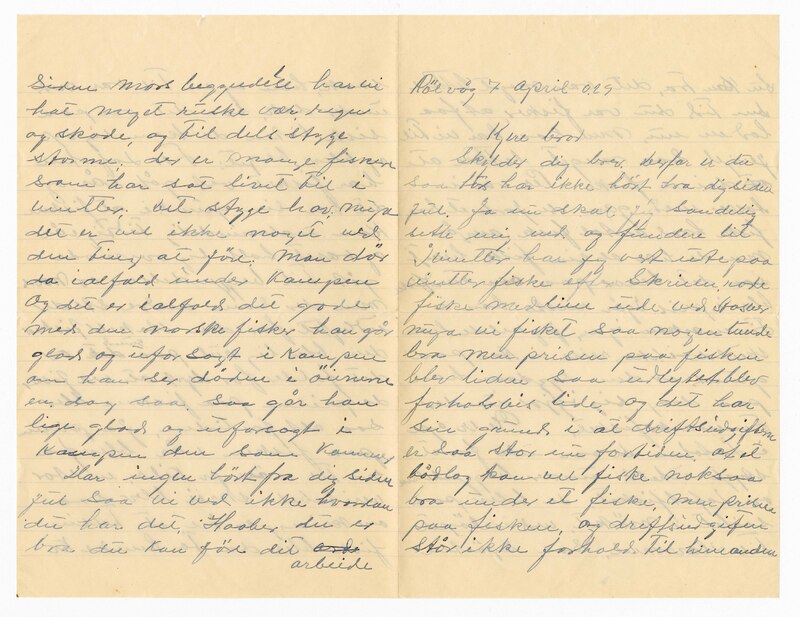 Siden mors begyndelse har vi
hat meget ruske vær regn
og skode, og til dels stygge
storme. der er mange fiskere
som har sat livet til i
vinter. Det stygge hav, mya
det er vel ikke noget ved
den ting at före. Man dör
da ialfald under Kampen
og det er ialfald det gode
med den norske fisker han går
glad og uforsagt i Kampen
om han ser döden i öinene
en dag saa går han
lige glad og uforsagt i
Kampen den som kommer
Har ingen hört fra dig siden
jul saa vi ved ikke hvordan
du har det. Haaber du er
bra du kan före dit
arbeide
7 April 929
Kjere bror
Skylder dig brev, derfor er du
saa har ikke hört fra dig siden
jul. Ja nu skal jeg sandelig
sette mig ned og fundere til
I vinter har jeg vert ute paa
vinter fiske efter Skreien, vode
fiske med line ude ved
mya vi fisket saa nogen tunde
bra men prisen paa fisken
blev liden saa udbyttet blev
forholsvis lide. og det har
sin grund i at driftsudgiften
er saa stor nu fortiden, at et
bådlog kan vel fiske noksaa
bra under et fiske, men prisen
paa fisken, og driftsudgifen
står ikke forhold til hinanden